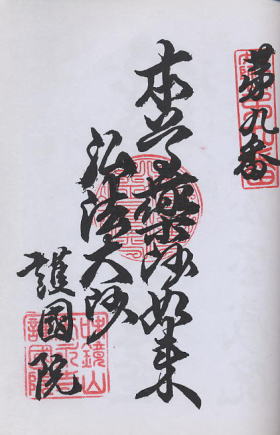 第九番
本尊薬師如来
弘法大師
護國院